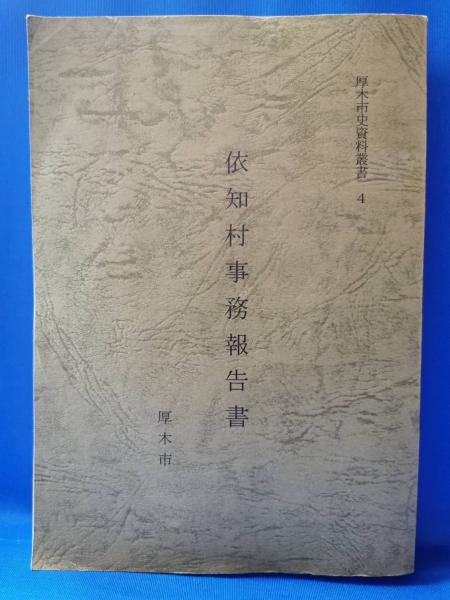 厚木市史資料叢書 4
依知村事務報告書
厚木市